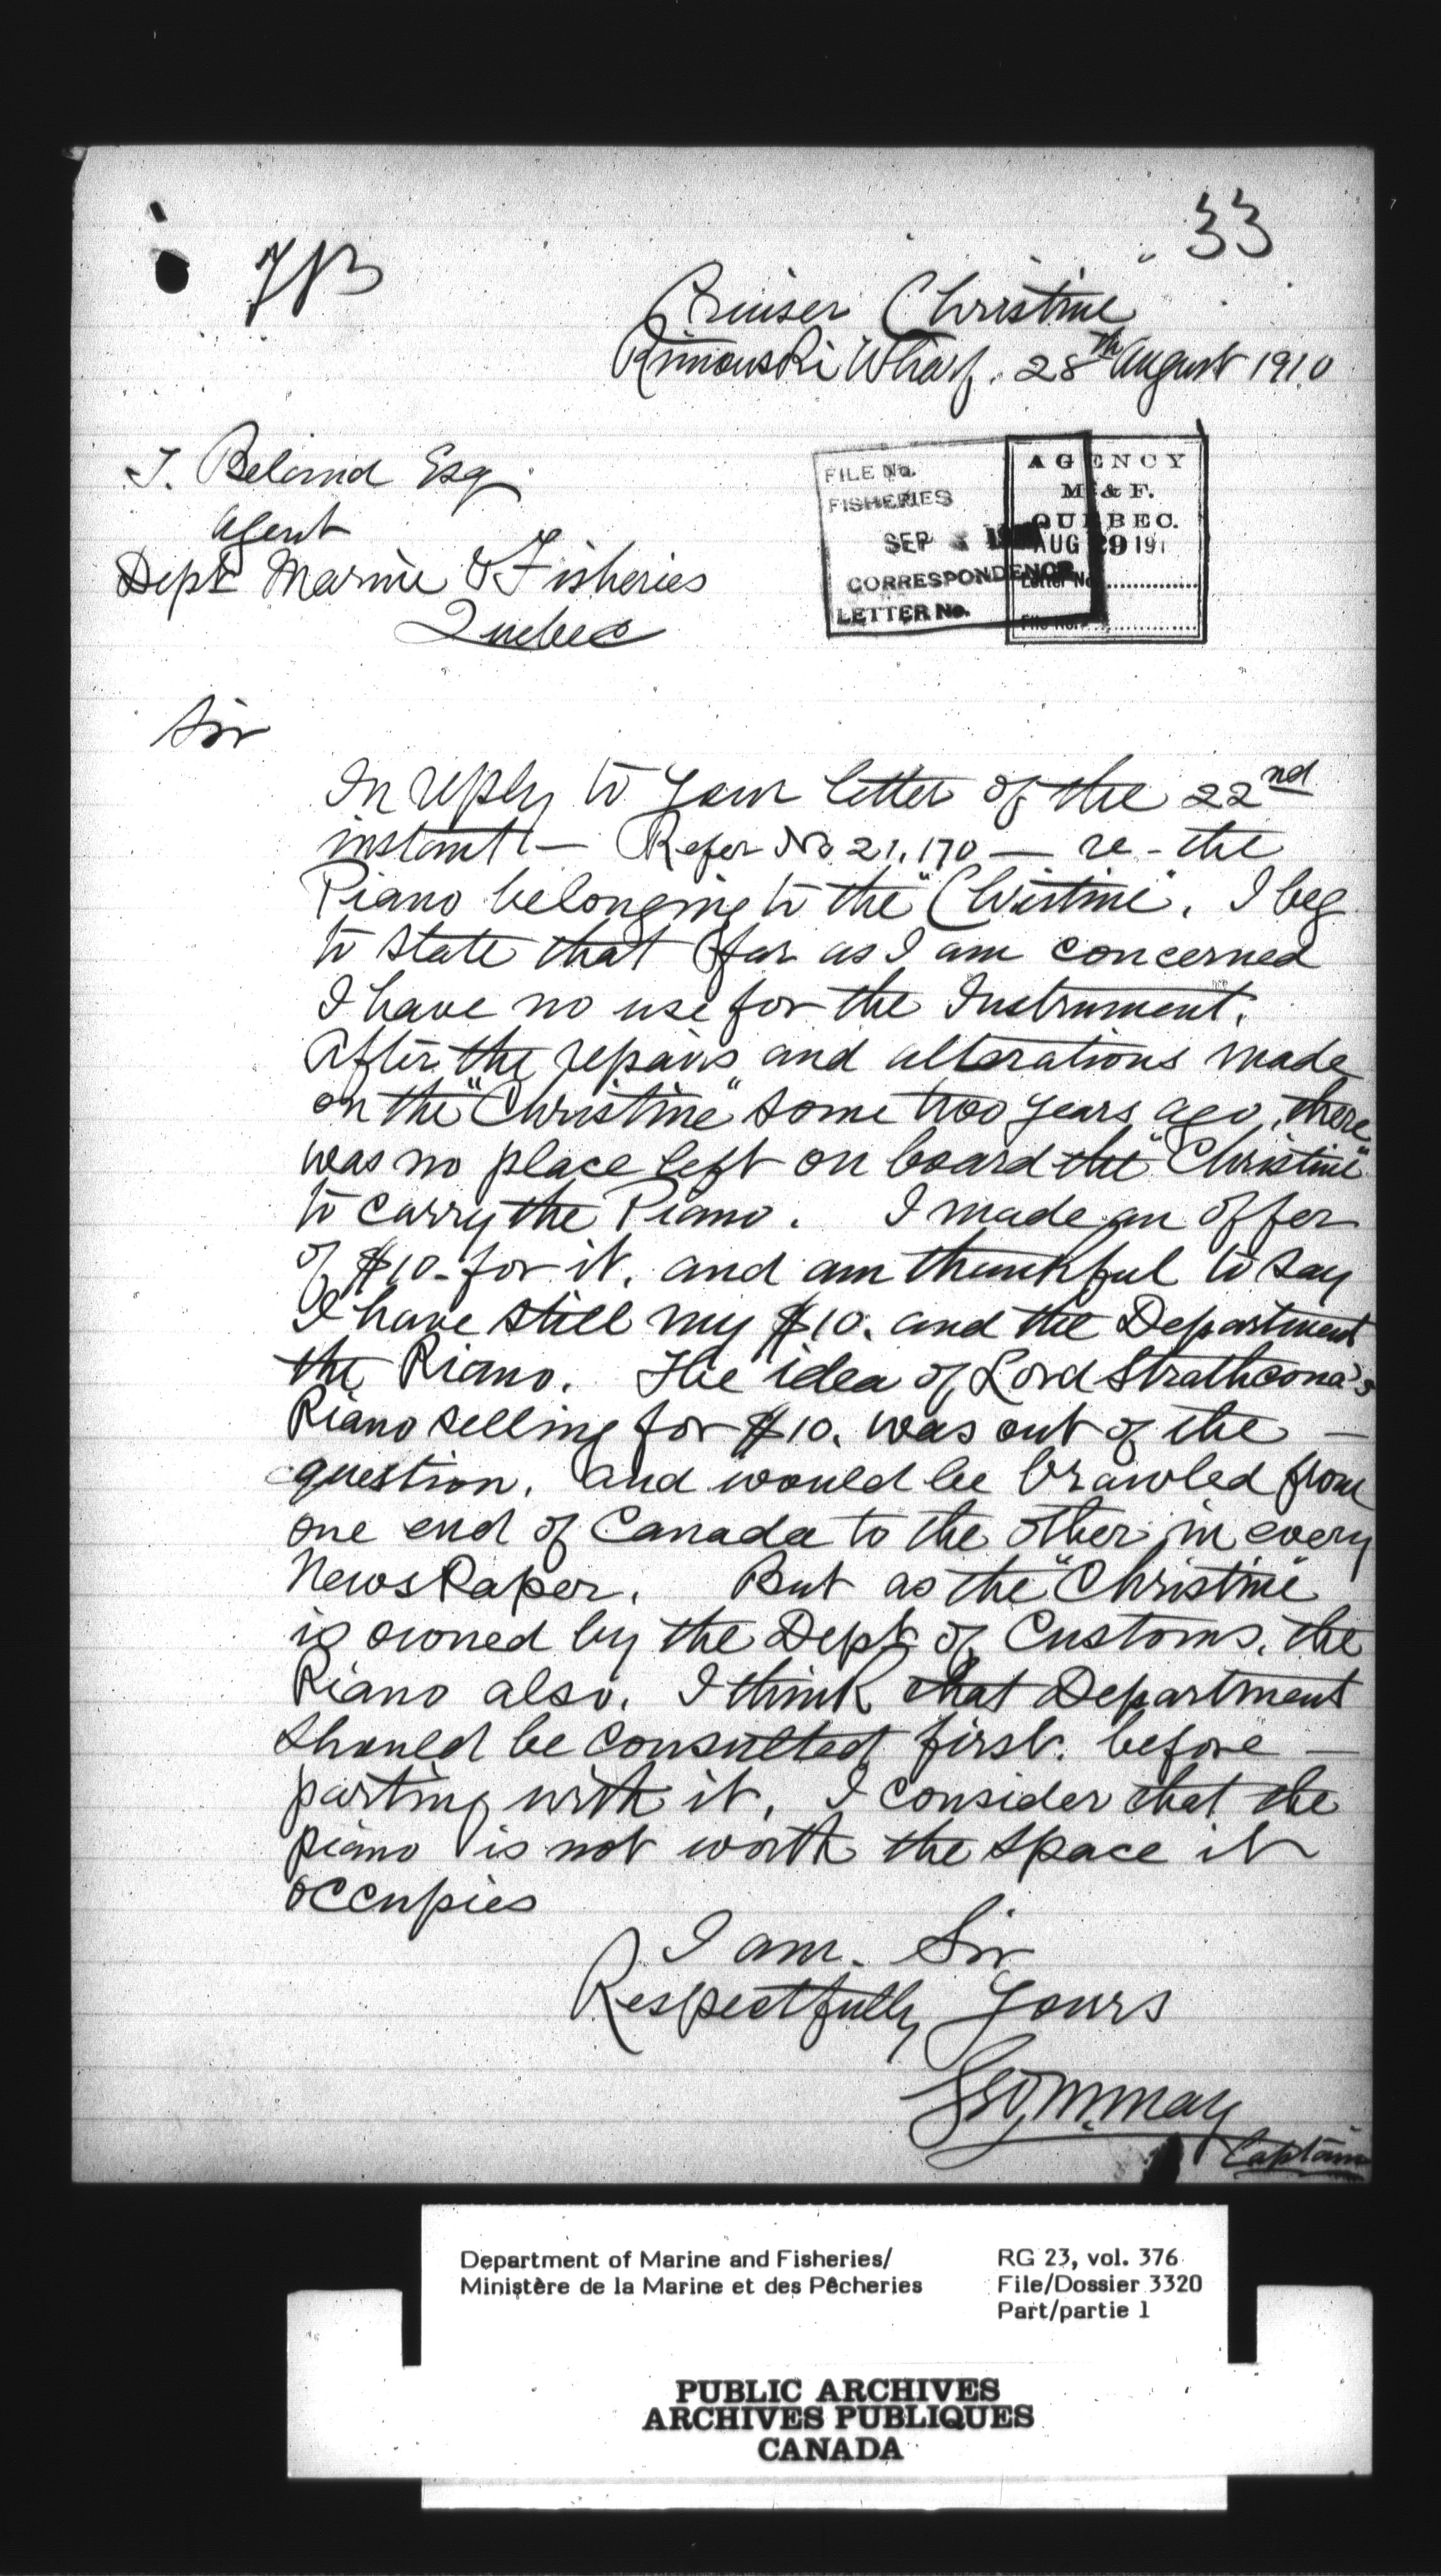 33
Cruiser "Christine"
Rimouski Wharf. 28th August 1910
J. Beland Esq.
Agent
Dept Marine & Fisheries
Quebec
FILE No.
FISHERIES
SEP
CORRESPONDENCE
LETTER No.
AGENCY
M. & F.
QUEBEC.
AUG 29 191
Letter No.
File No.
Sir
In reply to your letter of the 22nd
instant — Refer No 21,170 — re - the
Piano belonging to the "Christine". I beg
to state that far as I am concerned
I have no use for the Instrument.
After the repairs and alterations made
on the "Christine" some two years ago, there
was no place left on board the "Christine"
to carry the Piano. I made an offer
of $10- for it, and am thankful to say
I have still my $10. and the Department
the Piano. The idea of Lord Strathcona's
Piano selling for $10. was out of the —
question, and would be brawled from
one end of Canada to the other in every
NewsPaper. But as the "Christine"
is owned by the Dept of Customs, the
Piano also. I think that Department
should be consulted first. before —
parting with it. I consider that the
piano is not worth the space it
occupies
I am. Sir
Respectfully Yours
Captain
Department of Marine and Fisheries/
Ministère de la Marine et des Pêcheries
RG 23, vol. 376
File/Dossier 3320
Part/partie 1
PUBLIC ARCHIVES
ARCHIVES PUBLIQUES
CANADA